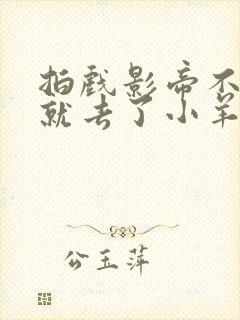 拍戏影帝不
就去了小羊
公玉萍